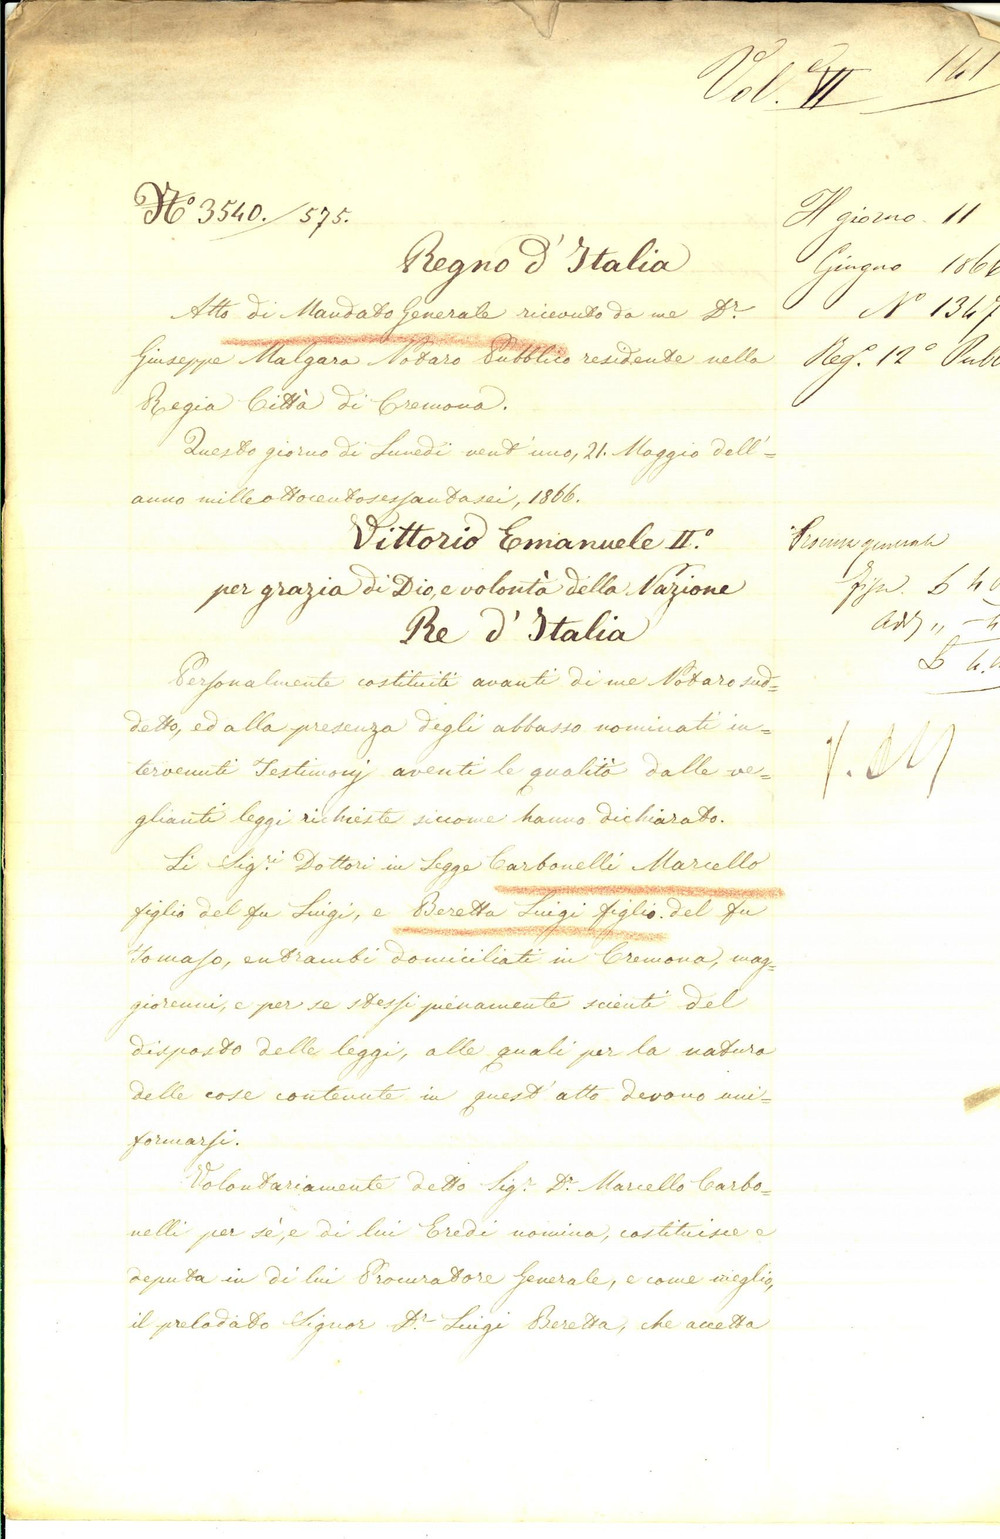 Vol. VI 141
N.° 3540./575.
Regno d'Italia
Atto di Mandato Generale ricevuto da me Dr.
Giuseppe Malgara Notaro Pubblico residente nella
Regia Città di Cremona.
Questo giorno di Lunedì vent'uno, 21. Maggio dell'=
anno mille ottocentosessantasei, 1866.
Vittorio Emanuele II.°
per grazia di Dio, e volontà della Nazione
Re d'Italia
Personalmente costituiti avanti di me Notaro sud=
detto, ed alla presenza degli abbasso nominati in=
tervenuti Testimonj aventi le qualità dalle ve=
glianti leggi richieste siccome hanno dichiarato.
Li Sigri. Dottori in Legge Carbonelli Marcello
figlio del fu Luigi, e Beretta Luigi figlio del fu
Tomaso, entrambi domiciliati in Cremona, mag=
giorenni, e per se stessi pienamente scienti del
disposto delle leggi, alle quali per la natura
delle cose contenute in quest'atto devono uni=
formarsi.
Volontariamente detto Sigr. Dr. Marcello Carbo=
nelli per sé, e di lui Eredi nomina, costituisce e
deputa in di lui Procuratore Generale, e come meglio,
il prelodato Signor Dr. Luigi Beretta, che accetta
Il giorno 11
Giugno 186
N° 1347
Reg.° 12° Pubb
Procura generale